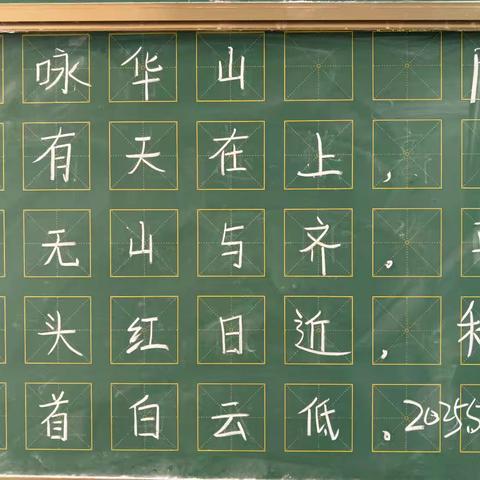 咏华山
有天在上，
无山与齐。
头红日近，
首白云低。20255